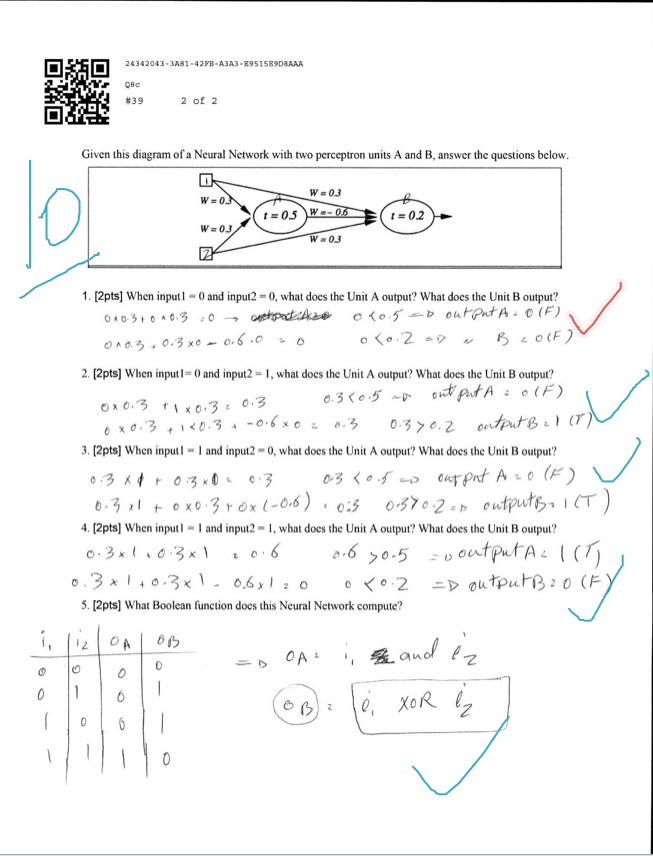 24342043-3A81-42FB-A3A3-E9515E9D8AAA
Q8c
#39 2 of 2
Given this diagram of a Neural Network with two perceptron units A and B, answer the questions below.
10
1
W = 0.3
W = 0.3
A
t = 0.5
W = - 0.6
B
t = 0.2
W = 0.3
W = 0.3
2
1. [2pts] When input1 = 0 and input2 = 0, what does the Unit A output? What does the Unit B output?
0×0.3+0×0.3 =0 → 0<0.5 => output A = 0 (F)
0×0.3 + 0.3×0 - 0.6.0 = 0 0<0.2 => " B = 0(F)
2. [2pts] When input1= 0 and input2 = 1, what does the Unit A output? What does the Unit B output?
0×0.3 +1×0.3 = 0.3 0.3<0.5 => output A = 0 (F)
0×0.3 + 1×0.3 + -0.6×0 = 0.3 0.3>0.2 output B = 1 (T)
3. [2pts] When input1 = 1 and input2 = 0, what does the Unit A output? What does the Unit B output?
0.3 × 1 + 0.3×0 = 0.3 0.3 < 0.5 => output A = 0 (F)
0.3×1 + 0×0.3+0×(-0.6) = 0.3 0.3>0.2 => output B = 1 (T)
4. [2pts] When input1 = 1 and input2 = 1, what does the Unit A output? What does the Unit B output?
0.3×1 + 0.3×1 = 0.6 0.6 >0.5 => output A = 1 (T)
0.3×1+0.3×1 - 0.6×1 = 0 0 <0.2 => output B = 0 (F)
5. [2pts] What Boolean function does this Neural Network compute?
i1 i2 OA OB
0 0 0 0
0 1 0 1
1 0 0 1
1 1 1 0
=> OA = i1 and i2
OB = i1 XOR i2